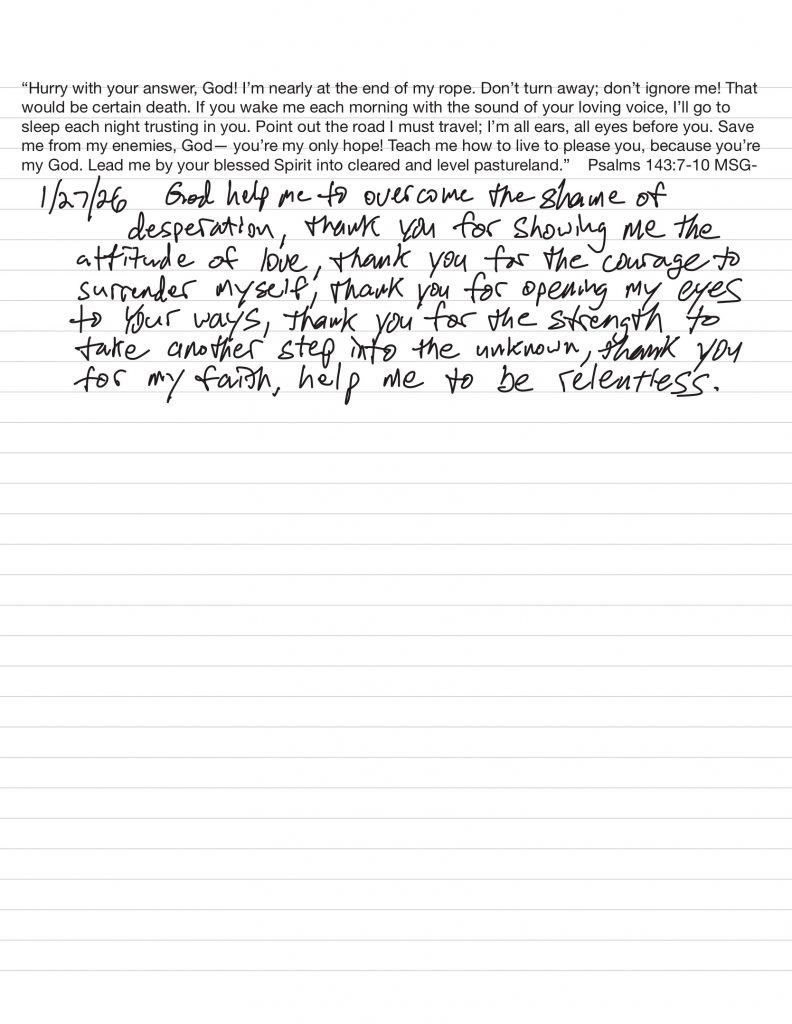 “Hurry with your answer, God! I’m nearly at the end of my rope. Don’t turn away; don’t ignore me! That
would be certain death. If you wake me each morning with the sound of your loving voice, I’ll go to
sleep each night trusting in you. Point out the road I must travel; I’m all ears, all eyes before you. Save
me from my enemies, God— you’re my only hope! Teach me how to live to please you, because you’re
my God. Lead me by your blessed Spirit into cleared and level pastureland.” Psalms 143:7-10 MSG-
1/27/26 God help me to overcome the shame of
desperation, thank you for showing me the
attitude of love, thank you for the courage to
surrender myself, thank you for opening my eyes
to Your ways, thank you for the strength to
take another step into the unknown, thank you
for my faith, help me to be relentless.